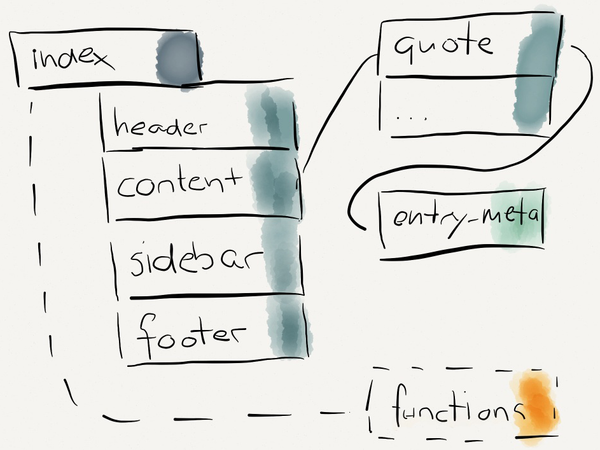 index
header
content
sidebar
footer
quote
...
entry-meta
functions